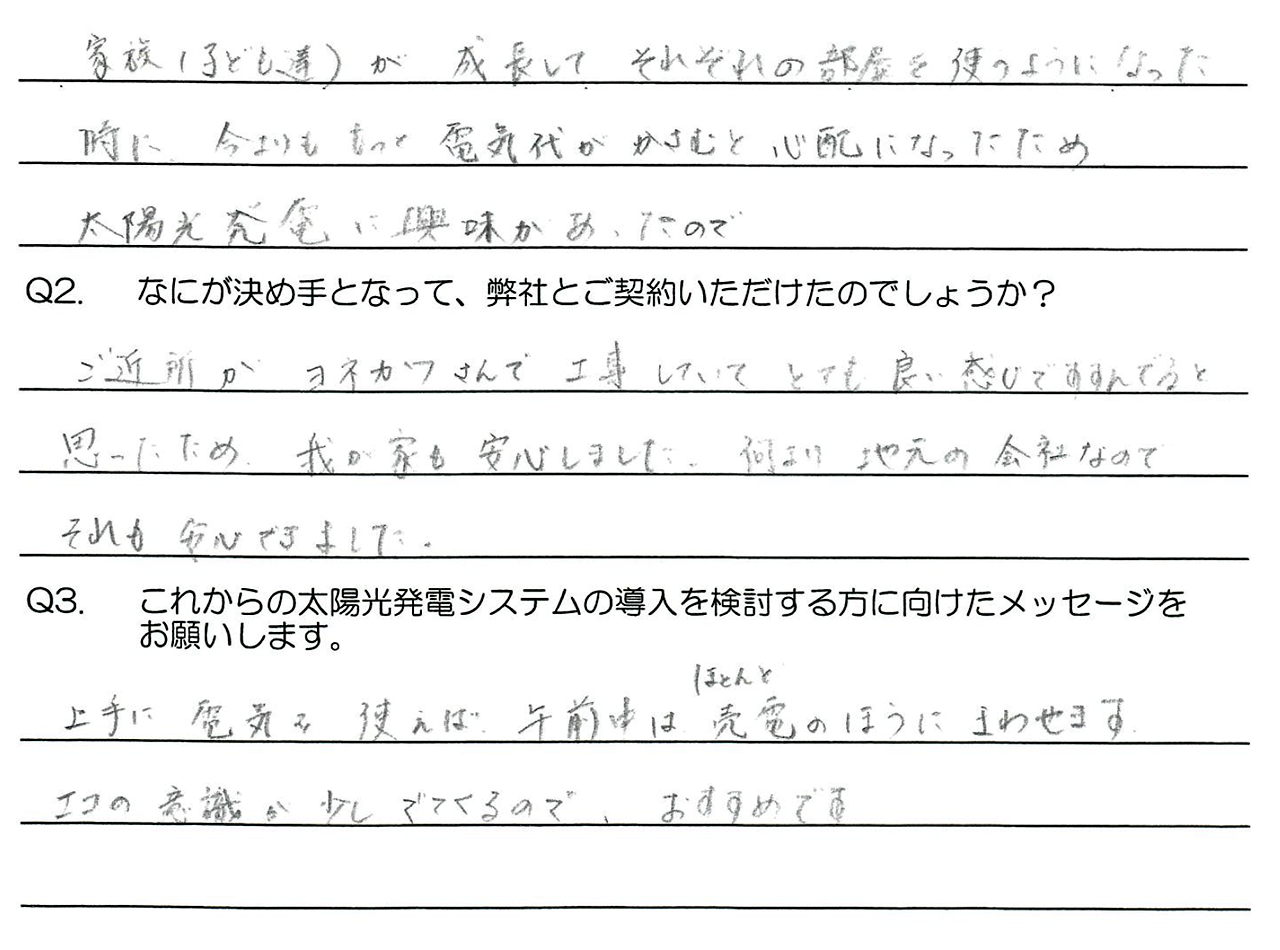 家族(子ども達)が 成長して それぞれの部屋を使うようになった
時に、今よりももっと電気代がかさむと心配になったため
太陽光発電に興味があったので
Q2. なにが決め手となって、弊社とご契約いただけたのでしょうか？
ご近所が ヨネカワさんで 工事していて とても良い感じですすんでると
思ったため、我が家も安心しました。何より 地元の会社なので
それも安心できました。
Q3. これからの太陽光発電システムの導入を検討する方に向けたメッセージを
お願いします。
ほとんど
上手に 電気を 使えば、午前中は 売電のほうに まわせます。
エコの意識が少しでてくるので、おすすめです